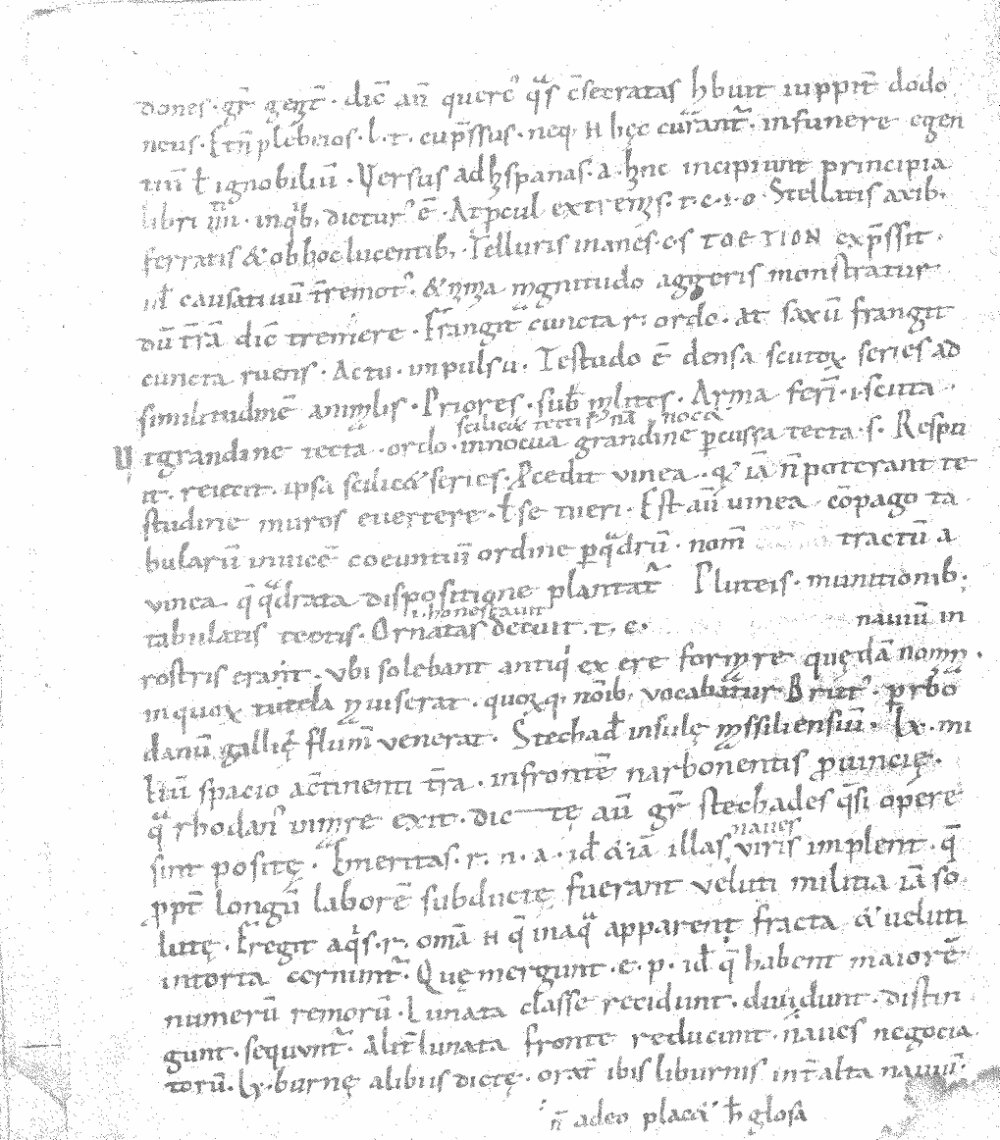 dones · gr̄ gent̄ · dic̄ an̄ querc᾽ qͣs c̄secratas hbuit iuppit̄ dodo
neus · Et n̄ plebeios · l · t · cup̄ssus · neq; н hęc curant᷑ · in funere egen
tiū ł ignobiliū · Versus ad hyspanas · a · hinc incipiunt principia
libri iiii · in qͥb; dictur᾽ ē · At ꝓcul extremis · t · c · i · o · Stellatis axib;
ferratis & ob hoc lucentib; · Telluris inanes · c · s TOETION exp̄ssit ·
ul̄ causatiuū t̄remot᾽ · & magnitudo aggeris monstratur
dū t̄rā dic̄ tremere · Frangit cuncta r · ordo · at saxū frangit
cuncta ruens · Actu · inpulsu · Testudo ē densa scutoꝝ series ad
similitudinē animlis · Priores · sub militis · Arma feri · i · scuta ·
scilicet tecti nā nocet
Vt grandine tecta · ordo · innocua grandine ꝑcussa tecta · s · Respu
it · reiecit · ipsa scilicet series · Pcedit vinea · qͥ iā n̄ poterant te
studine muros euertere · ł se tueri · Est aū uinea cōpago ta
bularū inuicē coeuntiū ordine ꝑ qͣdrū · nom̄ tractū a
vinea · q̄ qͣdrata dispositione plantat᷑ Pluteis · munitionib;
i · honestauit
tabulatis tectis · Ornatas decuit · t · e · nauiū in
rostris erant · vbi solebant antiqi ex ere formare quędā nomina ·
in quoꝝ tutela nauis erat · quoꝝq; nōib; vocabantur Brut᾽ · per bo
danū gallię flum̄ venerat · Stechad̄ insulę massiliensiū · Lx · mi
liū spacio ac̄tinenti t̄ra · in frontē narbonentis ꝓuincię ·
qͣ rhodan᾽ in mare exit · dic tę aū gr̄ stechades qͣsi opere
naues
sint positę · Emeritas · r · n · a · id̄ etiā illas viris implent · q̄
ꝓpt̄ longū laborē subductę fuerant veluti militia iā so
lutę · Fregit aqͣs · r · omā н q̄ in aqͣ apparent fracta & ueluti
intorta cernunt᷑ · Quę mergunt · e · p · id̄ q̄ habent maiorē
numerū remorū · Lunata classe recidunt · diuidunt · distin
gunt · sequunt᷑ · Alit̄ lunata fronte reducunt · naues negocia
torū · Lyburnę alibi is dictę · orat̄ ibis liburnis int̄ alta nauiū ·
n̄ adeo placet h̄ glosa